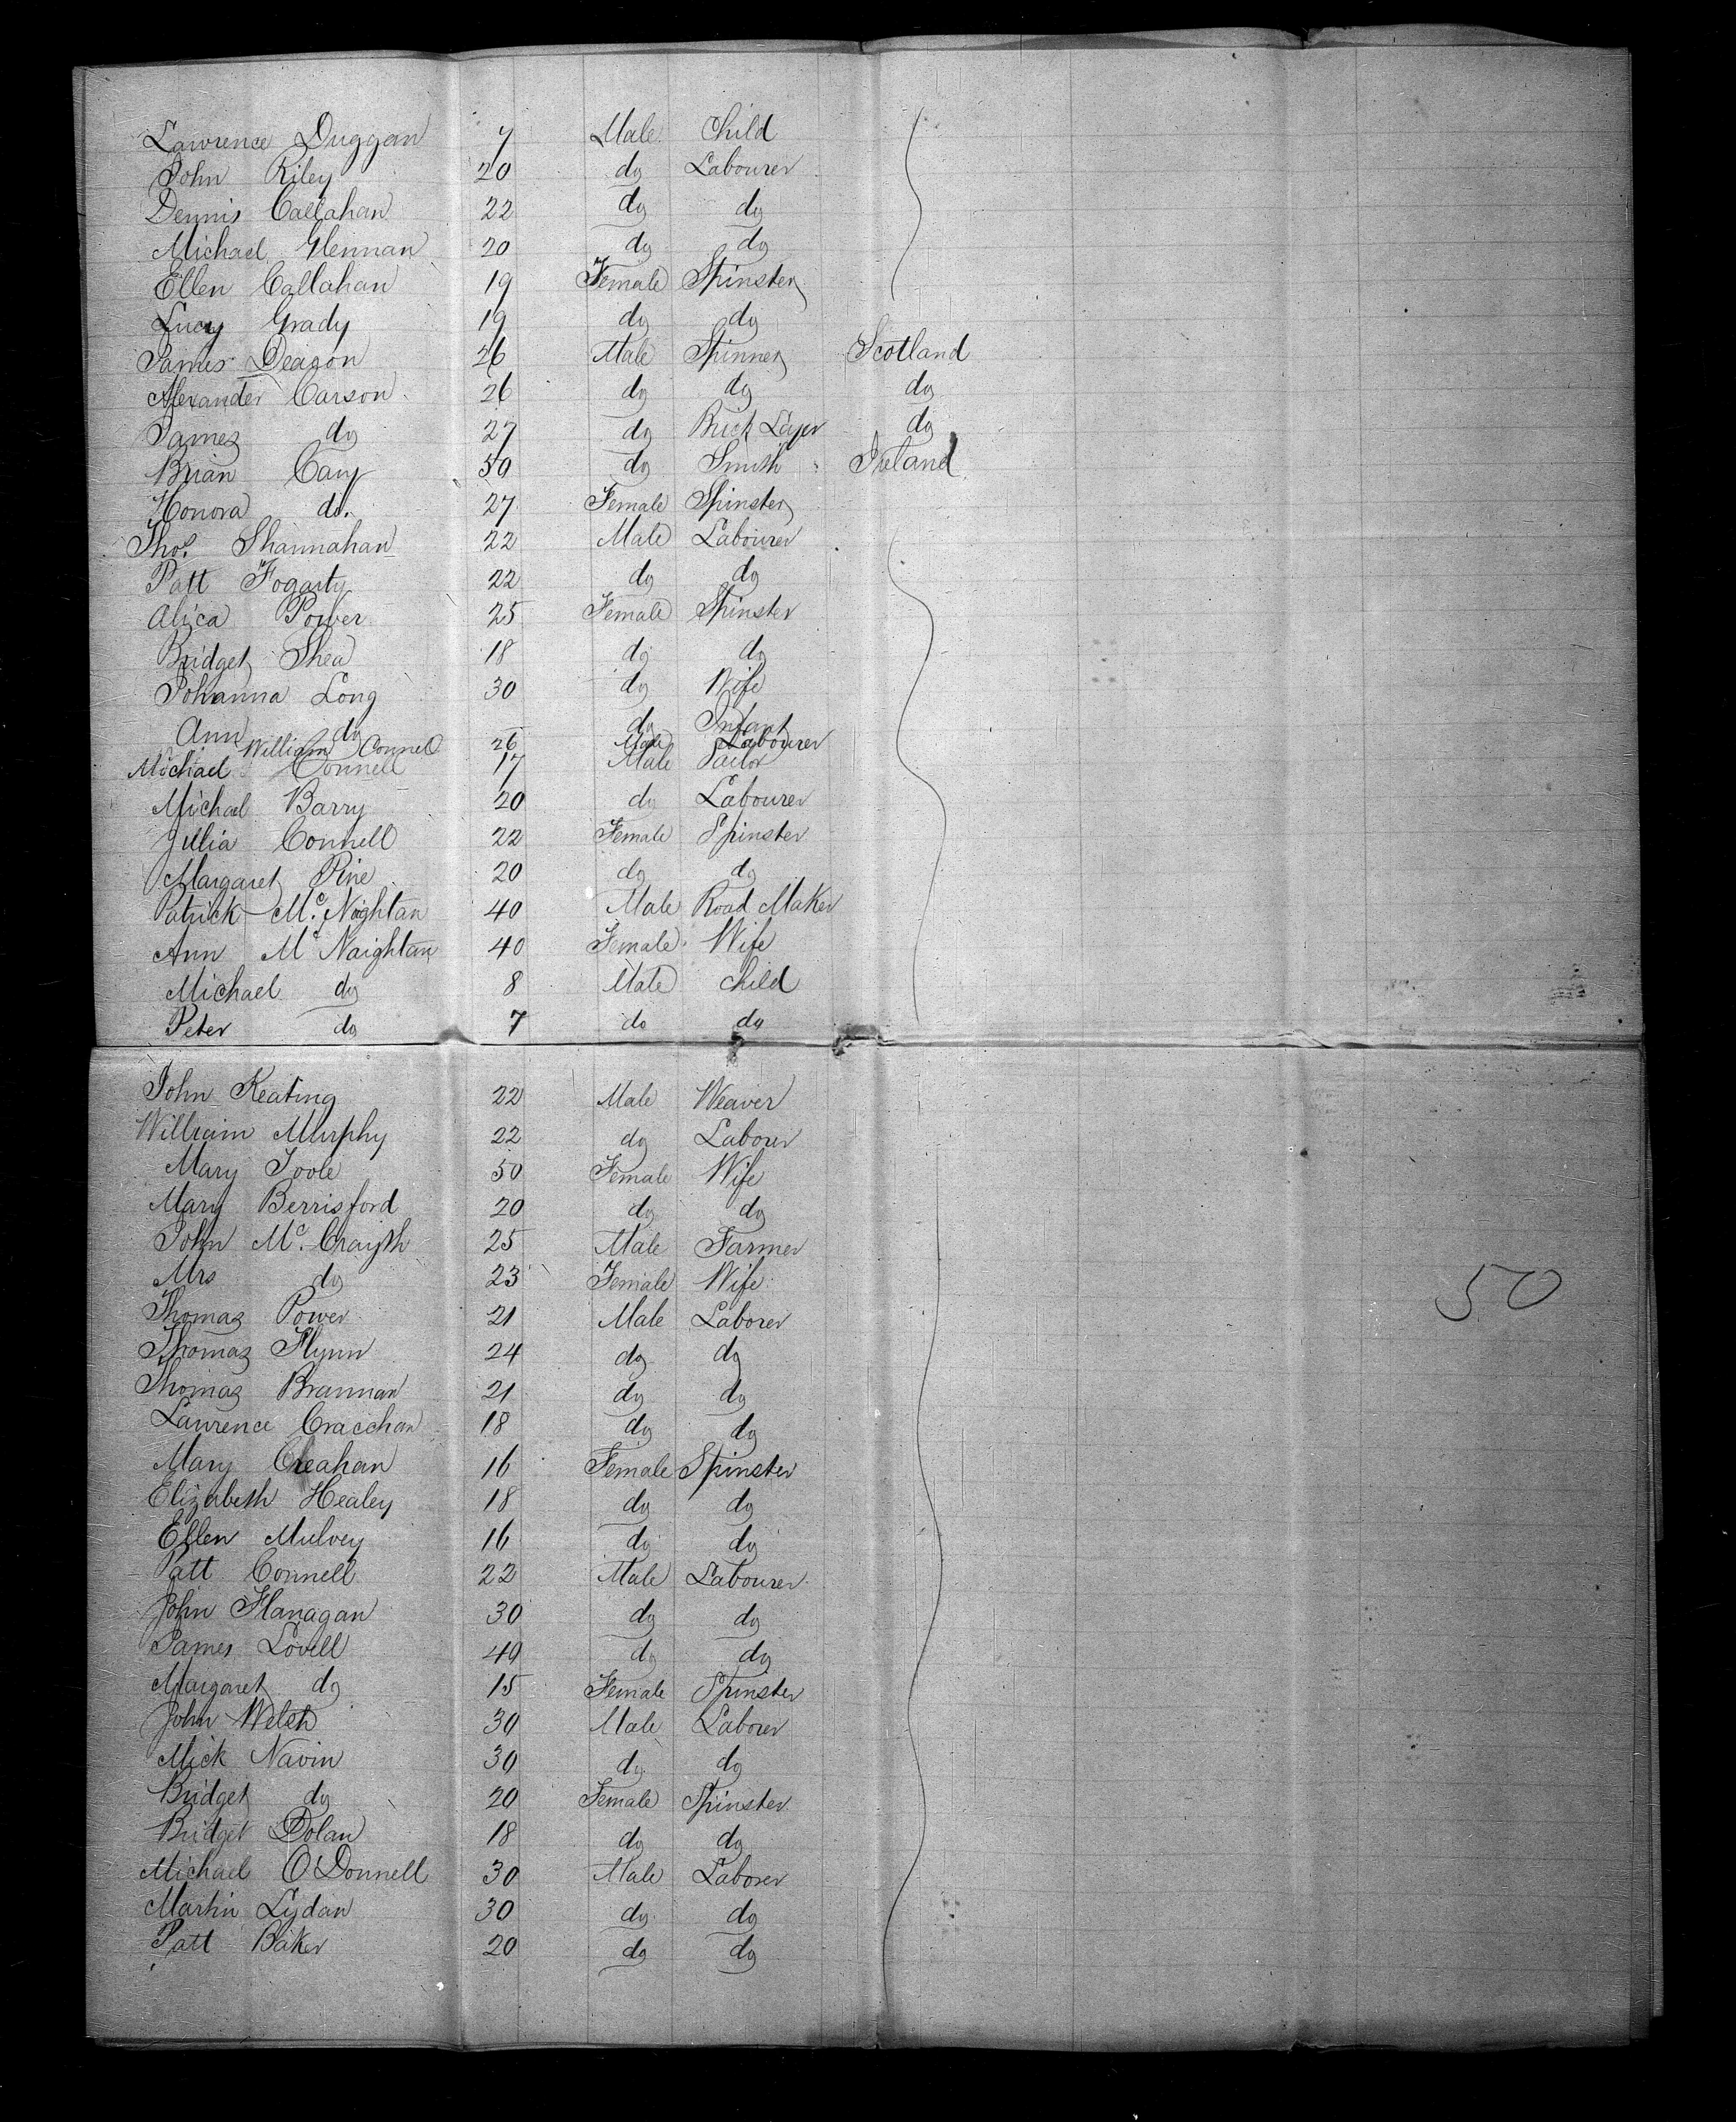 Lawrence Duggan 7 Male Child
John Riley 20 do Labourer
Dennis Callahan 22 do do
Michael Glennan 20 do do
Ellen Callahan 19 Female Spinster
Lucy Grady 19 do do
James Deagon 26 Male Spinner Scotland
Alexander Carson 26 do do do
James do 27 do Brick Layer do
Brian Cary 50 do Smith Ireland
Honora do. 27 Female Spinster
Thos. Shannahan 22 Male Labourer
Patt Fogarty 22 do do
Alica Power 25 Female Spinster
Bridget Shea 18 do do
Johanna Long 30 do Wife
Ann do do Infant
William Connel 26 Male Labourer
Michael Connell 17 Male Tailor
Michael Barry 20 do Labourer
Julia Connell 22 Female Spinster
Margaret Pine 20 do do
Patrick Mc. Naghtan 40 Male Road Maker
Ann Mc Naightan 40 Female Wife
Michael do 8 Male child
Peter do 7 do do
John Keating 22 Male Weaver
William Murphy 22 do Laborer
Mary Toole 50 Female Wife
Mary Berrisford 20 do do
John Mc. Crayth 25 Male Farmer
Mrs do 23 Female Wife
50
Thomas Power 21 Male Laborer
Thomas Flynn 24 do do
Thomas Brannan 21 do do
Lawrence Cracchan 18 do do
Mary Creahan 16 Female Spinster
Elizabeth Healey 18 do do
Ellen Mulvey 16 do do
Patt Connell 22 Male Labourer
John Flanagan 30 do do
James Lovell 40 do do
Margaret do 15 Female Spinster
John Welsh 30 Male Laborer
Mick Navin 30 do do
Bridget do 20 Female Spinster
Bridget Dolan 18 do do
Michael O'Donnell 30 Male Laborer
Martin Lydan 30 do do
Patt Baker 20 do do